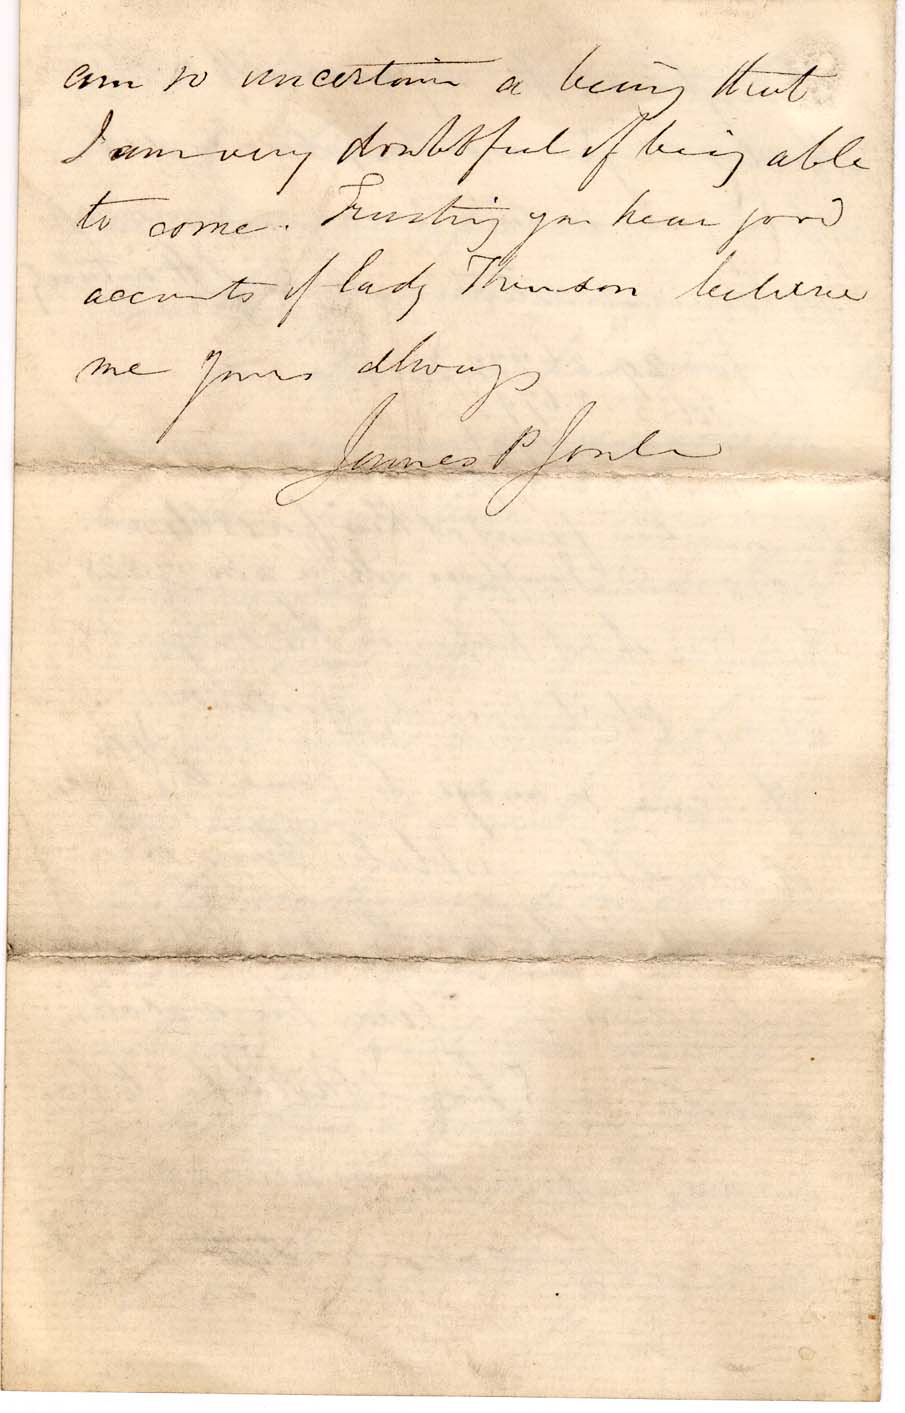 am so uncertain a being that
I am very doubtful of being able
to come. Trusting you hear good
accounts of Lady Thomson believe
me yours always
James P Joule